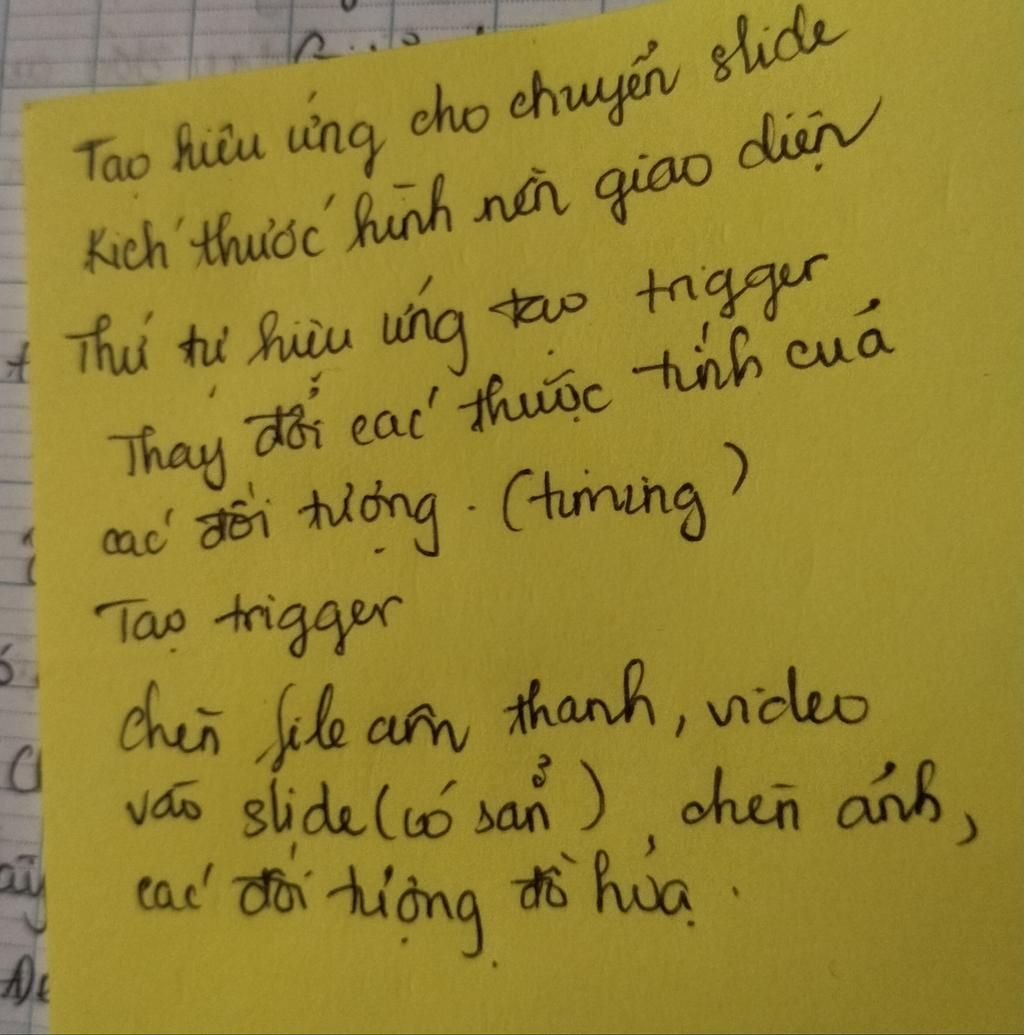 Tạo hiệu ứng cho chuyển slide
Kích thước hình nền giao diện
Thứ tự hiệu ứng tạo trigger
Thay đổi các thuộc tính của
các đối tượng. (timing)
Tạo trigger
chèn file âm thanh, video
vào slide (có sẵn), chèn ảnh,
các đối tượng đồ họa.